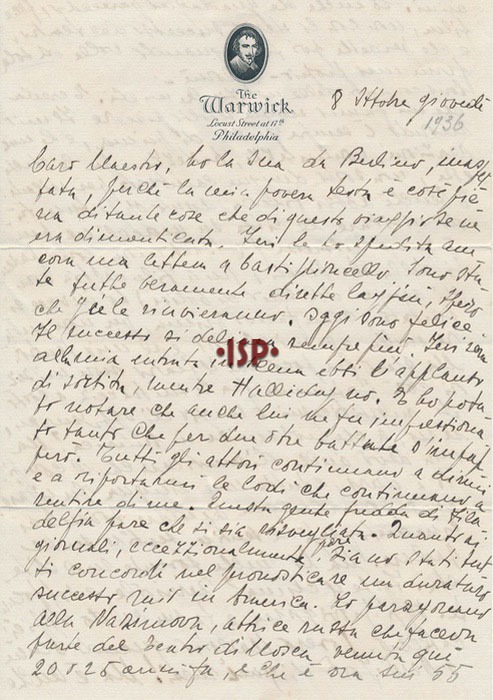 The
Warwick
Locust Street at 17th
Philadelphia
8 Ottobre giovedì
1936
Caro Maestro, ho la Sua da Berlino, inaspet
tata, perchè la mia povera testa è così pie
na di tante cose che di questo viaggio me n'
era dimenticata. Ieri le ho spedita an
cora una lettera a Castiglioncello. Sono sta
te tutte veramente dirette laggiù, spero
che gliele rinvieranno. Oggi sono felice.
Il successo si delinea sempre più. Ieri sera
alla mia entrata in scena ebbi l'applauso
di sortita, mentre Halliday no. E ho potu
to notare che anche lui ne fu impressiona
to tanto che per due o tre battute s'impap
però. Tutti gli attori continuano a dirmi
e a riportarmi le lodi che continuano a
sentire di me. Questa gente fredda di Fila
delfia pare che si sia risvegliata. Quanto ai
giornali, eccezzionalmente, pare siano stati tut
ti concordi nel pronosticare un duraturo
successo mio in America. Lo paragonano
alla Nazimova, attrice russa che faceva
parte del Teatro di Mosca, venuta qui
20 o 25 anni fa, e che è ora sui 55
•ISP•